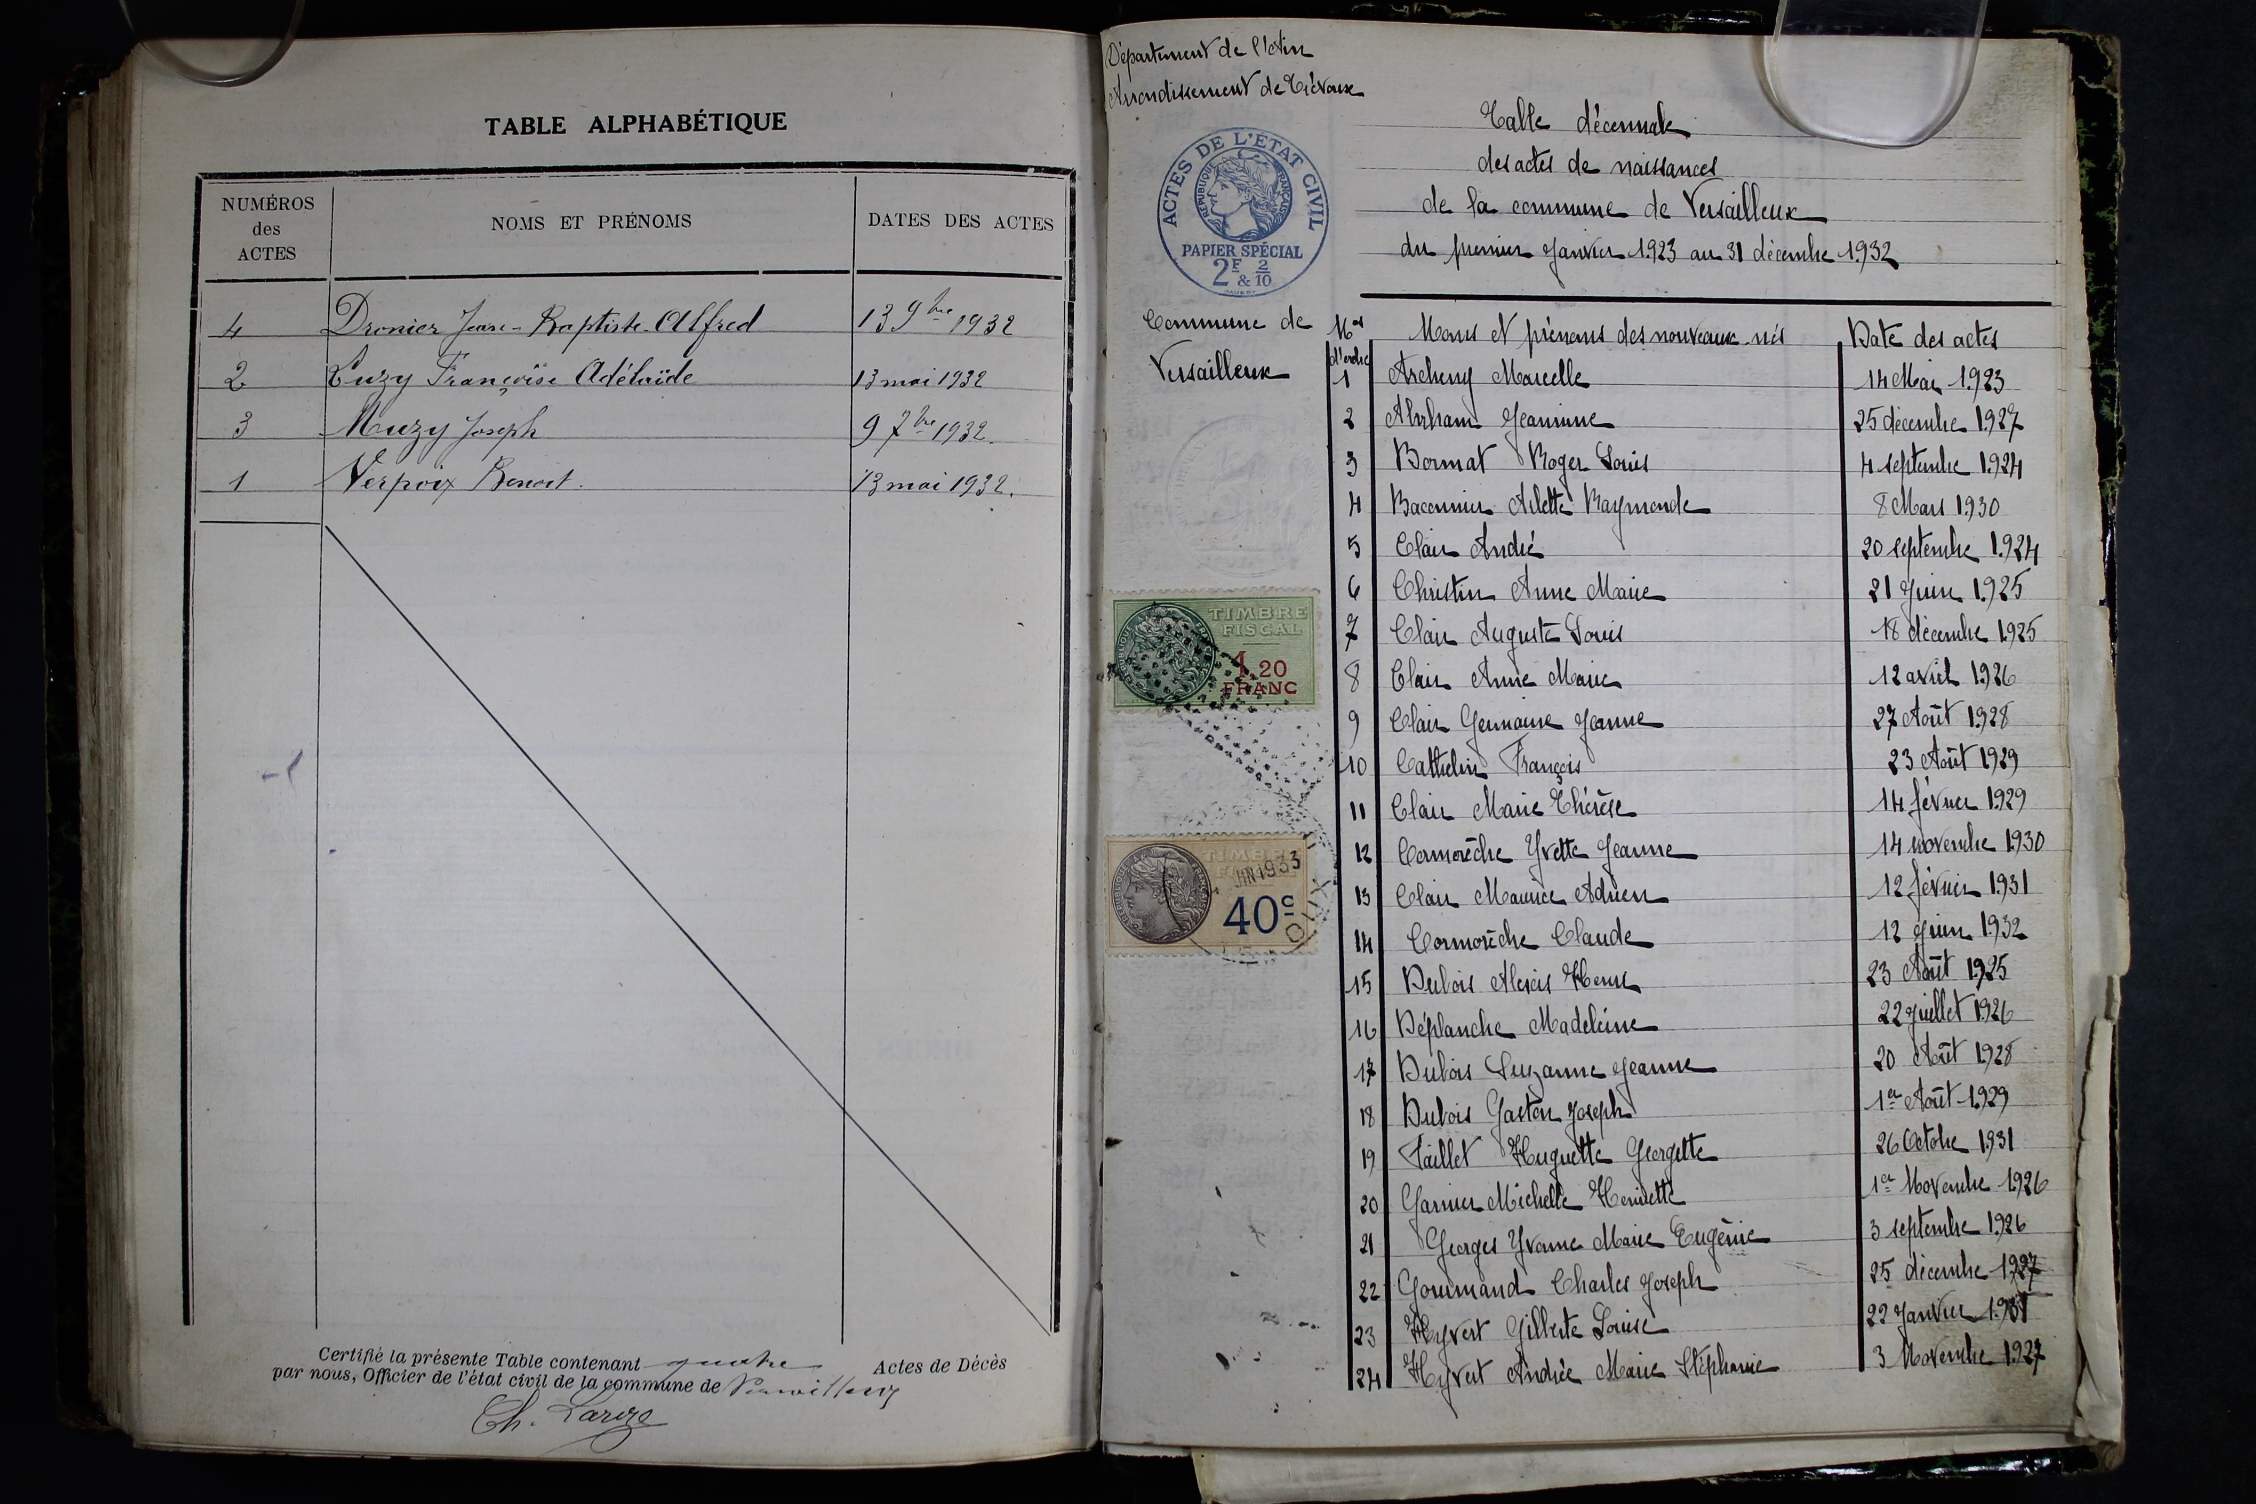 TABLE ALPHABÉTIQUE
NUMÉROS des ACTES NOMS ET PRÉNOMS DATES DES ACTES
4 Dronier Jean-Baptiste-Alfred 13 9bre 1932
2 Luzy Françoise Adélaïde 13 mai 1932
3 Muzy Joseph 9 7bre 1932.
1 Verpoix Benoit. 13 mai 1932.
Certifié la présente Table contenant quatre Actes de Décès
par nous, Officier de l'état civil de la commune de Versailleux
Ch.
Département de l'Ain
Arrondissement de Trévoux
ACTES DE L'ETAT CIVIL
REPUBLIQUE FRANÇAISE
PAPIER SPÉCIAL
2F & 2/10
Commune de
Versailleux
TIMBRE
FISCAL
1.20
FRANC
TIMBRE
JUIN 1933
40c
Table décennale
des actes de naissances
de la commune de Versailleux
du premier Janvier 1923 au 31 décembre 1932
Nos d'ordre Noms et prénoms des nouveaux-nés Date des actes
1 Archeny Marcelle 14 Mai 1923
2 Abrham Jeannine 25 décembre 1927
3 Bornat Roger Louis 4 septembre 1924
4 Baconnier Arlette Raymonde 8 Mars 1930
5 Clair André 20 septembre 1924
6 Christin Anne Marie 21 Juin 1925
7 Clair Auguste Louis 18 décembre 1925
8 Clair Anne Marie 12 avril 1926
9 Clair Germaine Jeanne 27 Août 1928
10 Cathelin François 23 Août 1929
11 Clair Marie Thérèse 14 février 1929
12 Cormorèche Yvette Jeanne 14 novembre 1930
13 Clair Maurice Adrien 12 février 1931
14 Cormorèche Claude 12 Juin 1932
15 Dubois Alexis Henri 23 Août 1925
16 Déplanche Madeleine 22 Juillet 1926
17 Dubois Suzanne Jeanne 20 Août 1928
18 Dubois Gaston Joseph 1er Août 1929
19 Faillet Huguette Georgette 26 Octobre 1931
20 Garnier Michelle Henriette 1er Novembre 1926
21 Georges Yvonne Marie Eugènie 3 septembre 1926
22 Gourmand Charles Joseph 25 décembre 1927
23 Hyvert Gilberte Louise 22 Janvier
24 Hyvert Andrée Marie Stéphanie 3 Novembre 1927